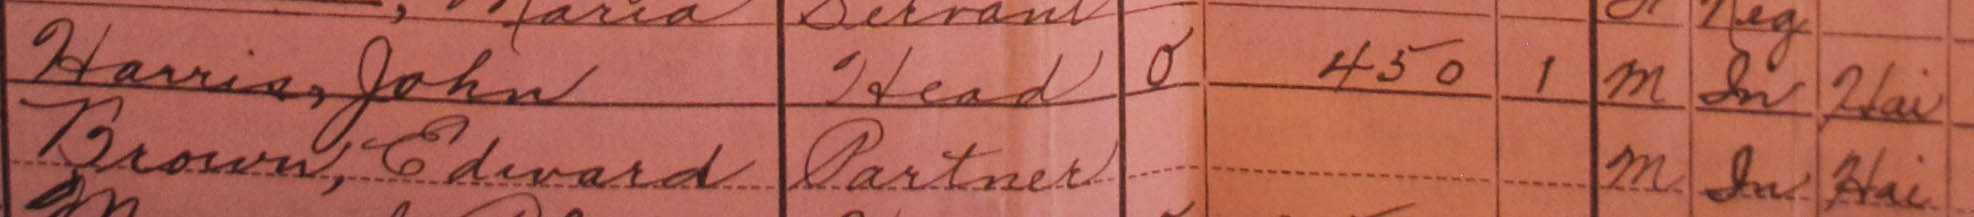 , Maria Servant Neg
Harris, John Head O 450 1 M In Hai
Brown, Edward Partner M In Hai